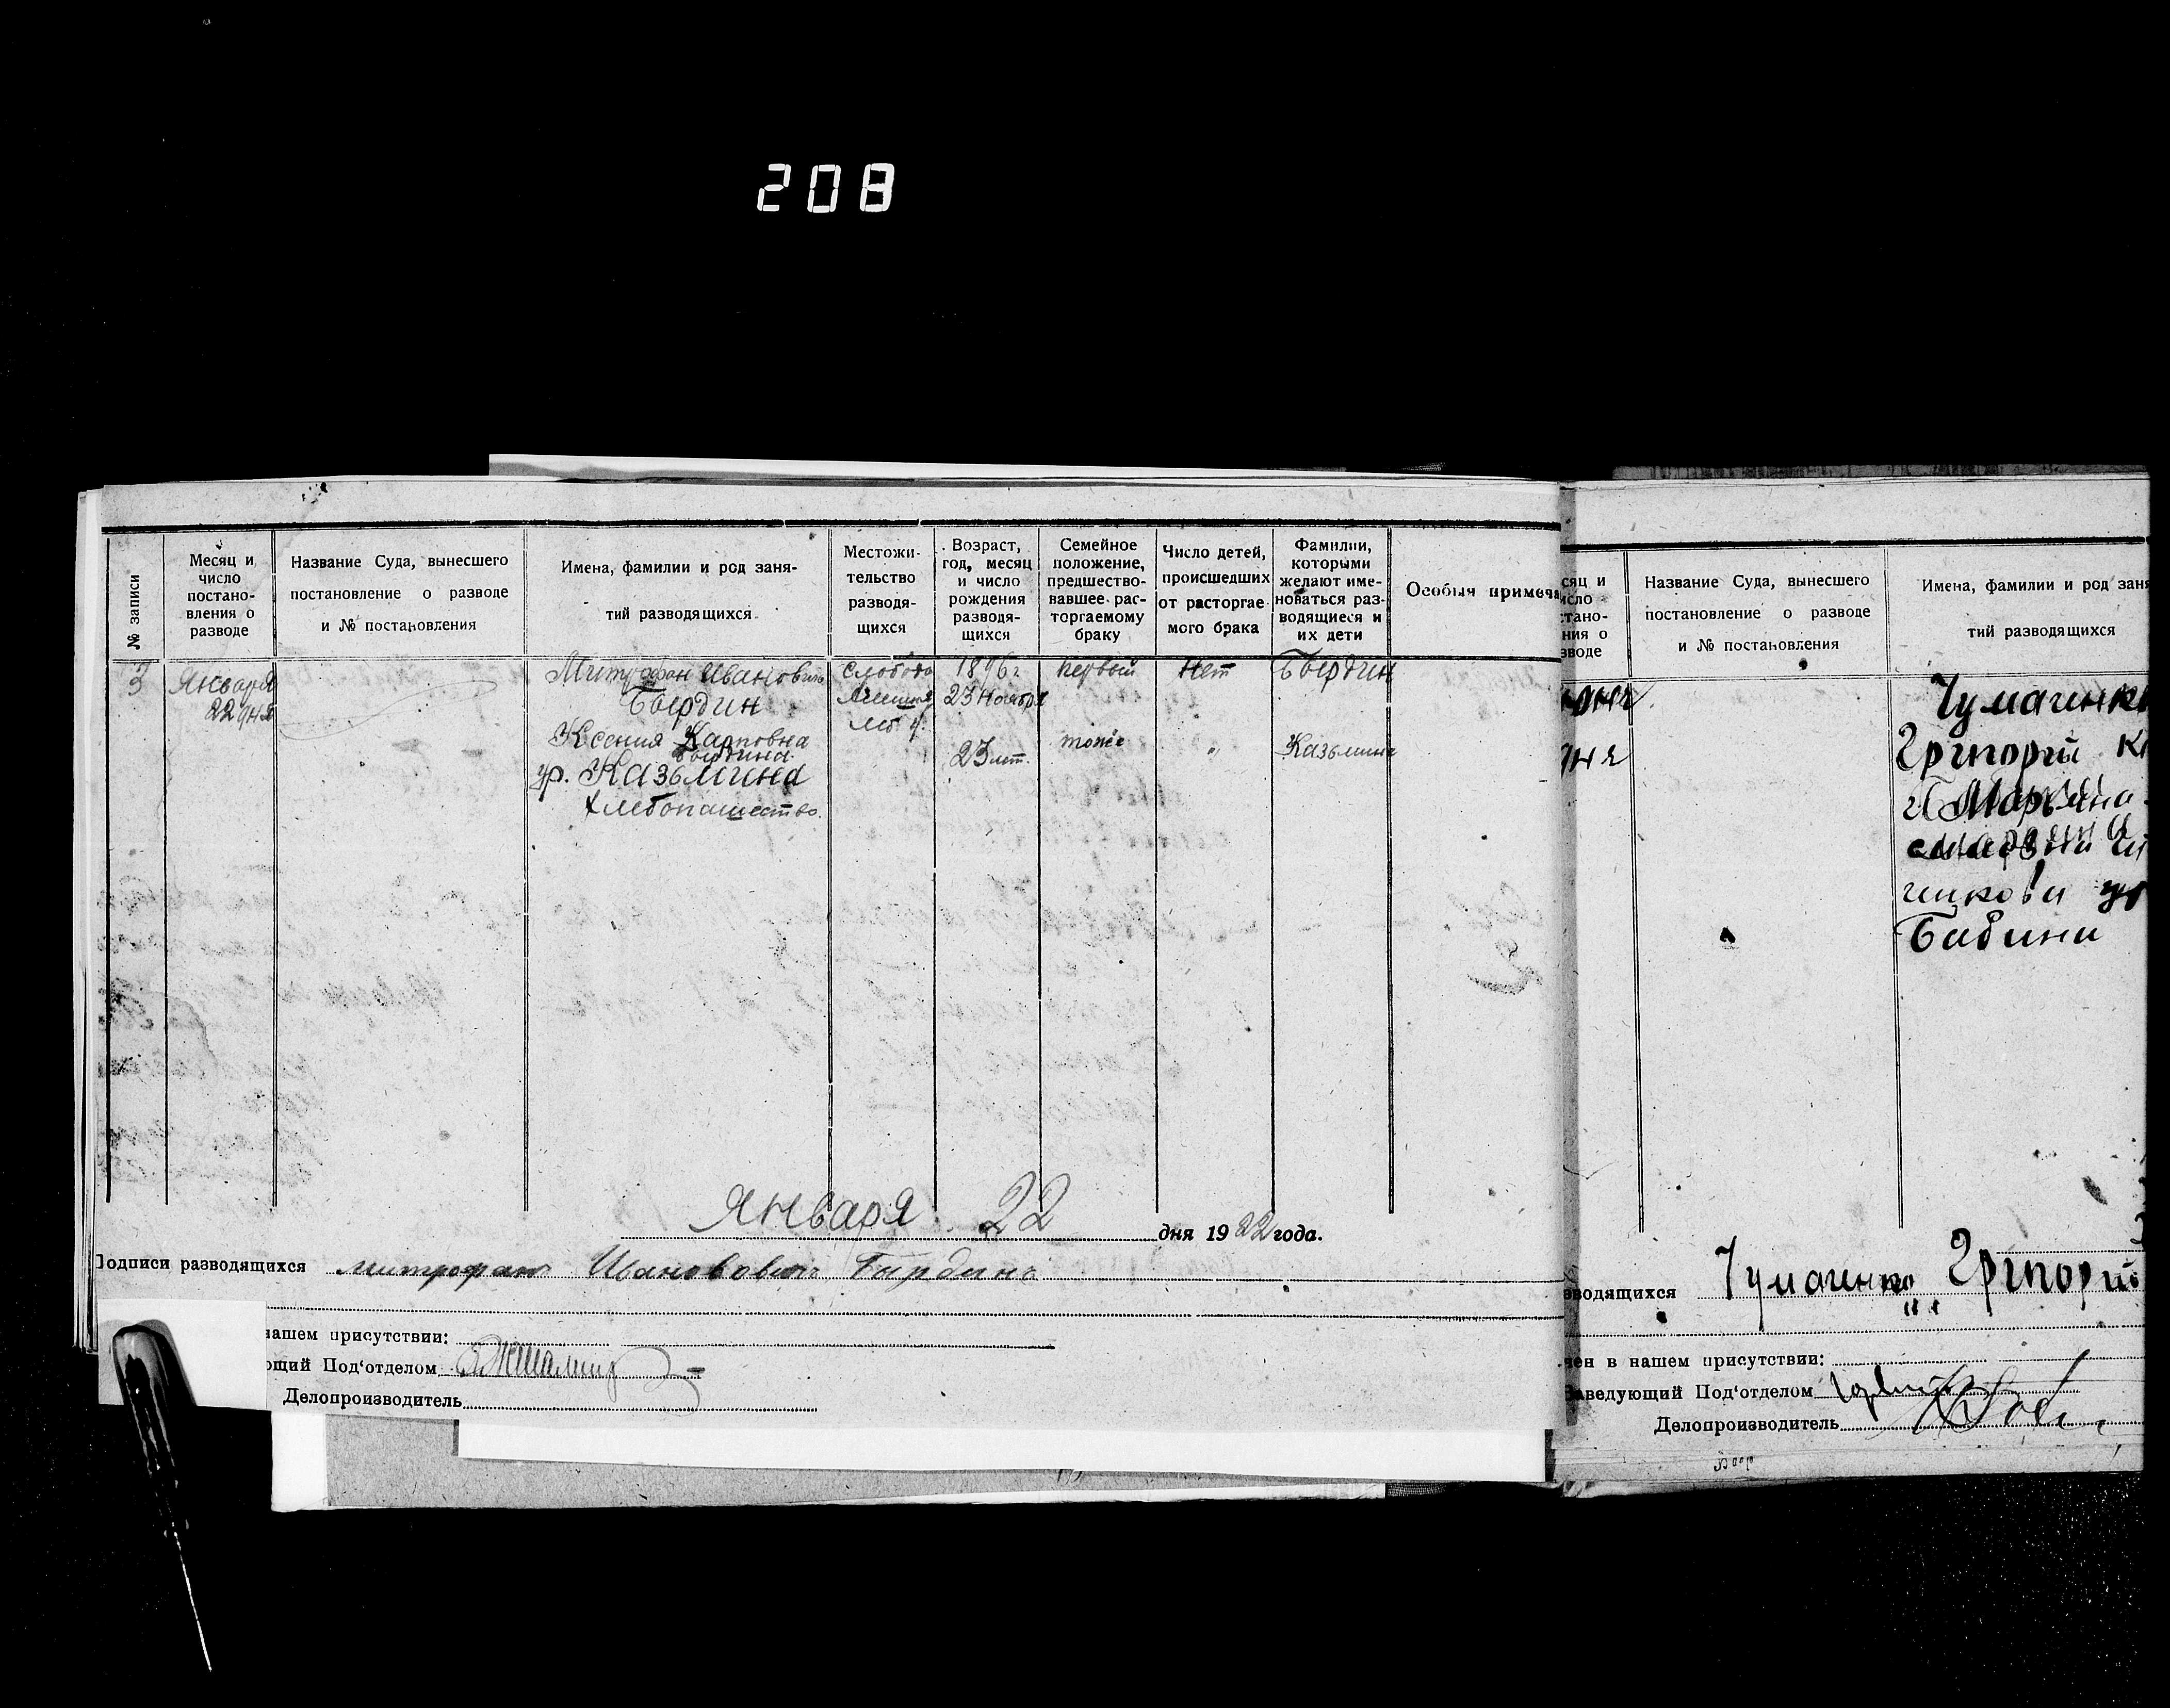 208
№ записи
Месяц и
число
постано-
вления о
разводе
Название Суда, вынесшего
постановление о разводе
и № постановления
Имена, фамилии и род заня-
тий разводящихся
Местожи-
тельство
разводя-
щихся
Возраст,
год, месяц
и число
рождения
разводя-
щихся
Семейное
положение,
предшество-
вавшее рас-
торгаемому
браку
Число детей,
происшедших
от расторгае-
мого брака
Фамилии,
которыми
желают име-
новаться раз-
водящиеся и
их дети
Особыя примеча
3
Января
22 дня
Митрофан Иванович
Бырдин
Ксения Карповна
Бырдина
ур. Казьмина
хлебопашество.
слобода
1896 г
23 Ноября
23 лет.
первый
тоже
Нет
"
Бырдин
Казьмина
Января 22 дня 1922 года.
Подписи разводящихся митрофан Ивановович Бырдинъ
нашем присутствии:
ющий Под'отделом
Делопроизводитель
сяц и
исло
стано-
ния о
зводе
Название Суда, вынесшего
постановление о разводе
и № постановления
Имена, фамилии и род заня
тий разводящихся
дня
дня
Чумаченко
Григорий
и Марьяна
Бабина
зводящихся Чумаченко Григорий
чен в нашем присутствии:
Заведующий Под'отделом
Делопроизводитель